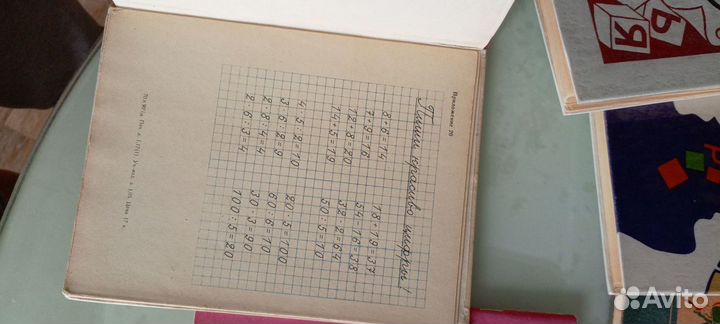 Приложение 20
Пиши красиво цифры!
8+6=14 18+19=37
7+9=16 54-16=38
12+8=20 32·2=64
14+5=19 50:5=10
4·5:2=10 20·5=100
3·6:2=9 60:6=10
2·8:4=4 30·3=90
2·6:3=4 100:5=20
Цена 17 к.
Я
Р
Avito